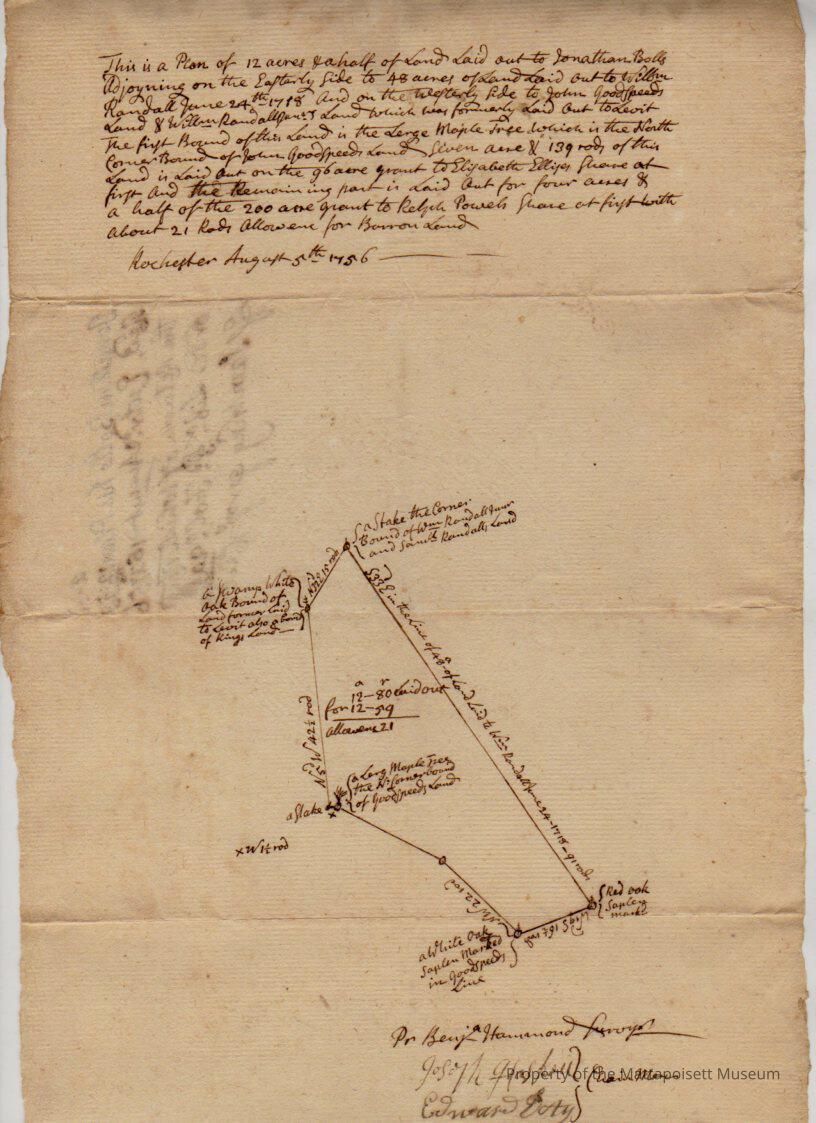 This is a Plan of 12 acres & a half of Land Laid out to Jonathan Bolls
Adjoyning on the Easterly Side to 48 acres of Land Laid out to Willm
Randall June 24th 1718 And on the Westerly Side to John Goodspeeds
Land & Willm Randall Junrs Land which was formerly Laid out to Levit
The first Bound of this Land is the Lerge Maple Tree which is the North
Corner Bound of John Goodspeeds Land Seven acre & 139 rods of this
Land is Laid out on the 96 acre grant to Elisabeth Ellises Sheare at
first And the Remaining part is Laid out for four acres &
a half of the 200 acre grant to Relph Powels Sheare at first with
about 21 Rods Allowenc for Barron Land
Rochester August 5th 1756
a Stake the Corner
Bound of Wm Randall Junr
and Samll Randalls Land
15 rod
a Swamp White
Oak Bound of
Land former Laid
to Levit also a bound
of Kings Land
S 35 E in the Line of 48 a of Land Laid to Wm Randall June 24-1718 - 91 rods
a r
12-80 Laid out
for 12-59
allowenc 21
N 5 W 42½ rod
a Lerg Maple Tree
the No Corner bound
of Goodspeeds Land
a Stake
x W 1½ rod
22 rod
Red oak
Saplen
markd
16½ rod
a White Oak
Saplen Marked
in Goodspeeds
Line
Pr Benja Hammond Survoyr
Joseph Haskell
Edward Doty
Chain Men
Property of the Mattapoisett Museum